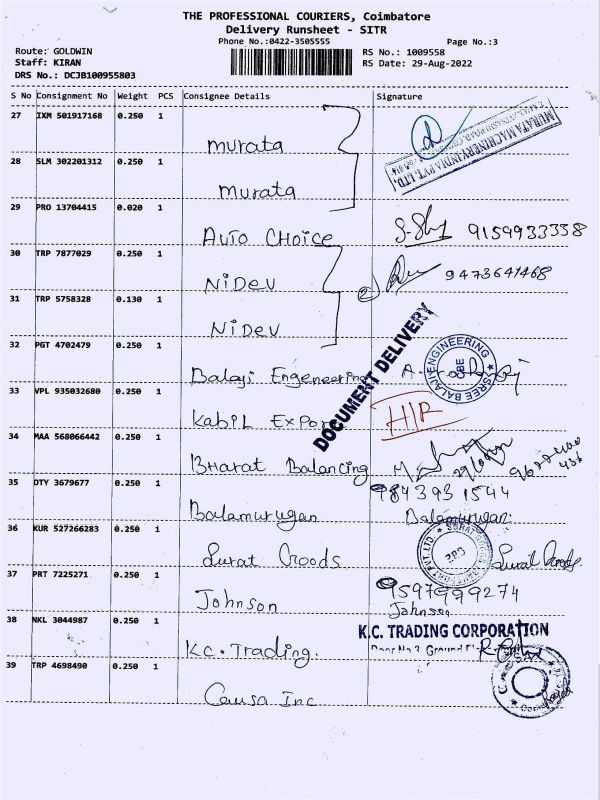 THE PROFESSIONAL COURIERS, Coimbatore
Delivery Runsheet - SITR
Phone No.:0422-3505555
Page No.:3
Route: GOLDWIN
RS No.: 1009558
Staff: KIRAN
RS Date: 29-Aug-2022
DRS No.: DCJB100955803
S No Consignment No Weight PCS Consignee Details Signature
27 IXM 501917168 0.250 1
murata
MURATA MACHINERY INDIA PVT. LTD.
28 SLM 302201312 0.250 1
murata
29 PRO 13704415 0.020 1
Auto CHOICE 9159933358
30 TRP 7877029 0.250 1
NiDEV 2 9473641468
31 TRP 5758328 0.130 1
NiDEV
DOCUMENT DELIVERY
32 PGT 4702479 0.250 1
Balaji Engeneering
SREE BALAJI ENGINEERING
SBE
33 VPL 935032680 0.250 1
Kabil Expor
34 MAA 568066442 0.250 1
Bharat Balancing
35 OTY 3679677 0.250 1
9843931544
Balamurugan Balamurugan
36 KUR 527266283 0.250 1
Surat Goods Surat Goods
37 PRT 7225271 0.250 1
9597999274
Johnson Johnson
38 NKL 3044987 0.250 1
K.C. TRADING CORPORATION
Door No 3 Ground
K.C. Trading.
39 TRP 4698490 0.250 1
Causa Inc